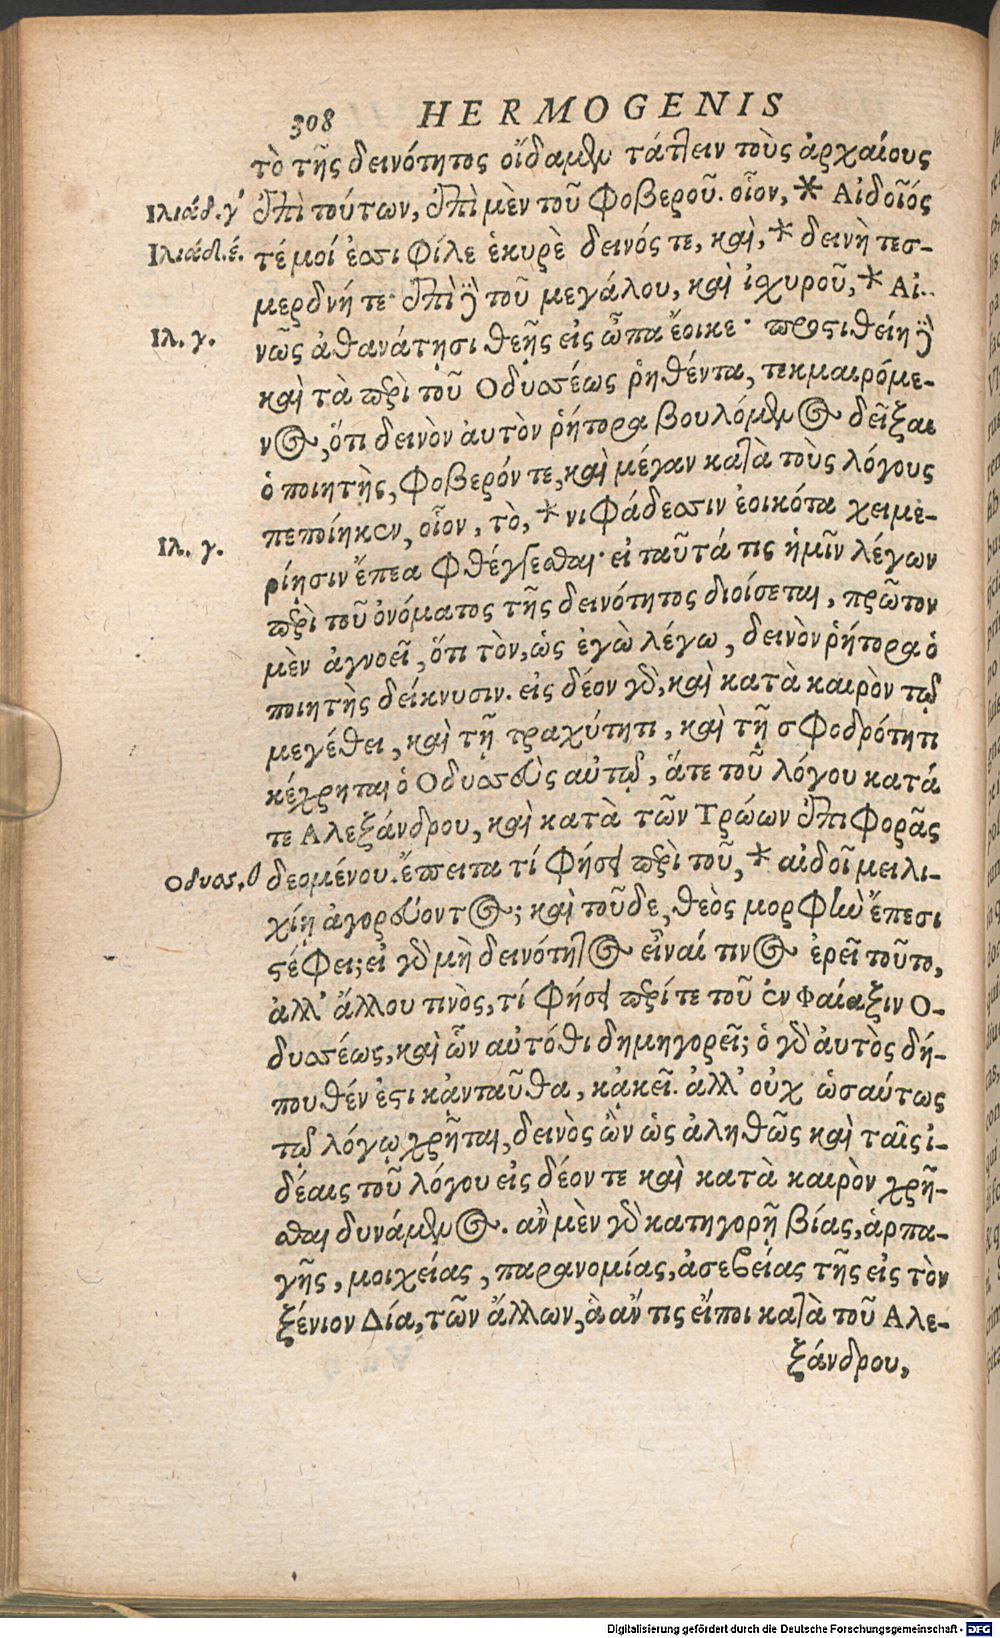 308 HERMOGENIS
τὸ τῆς δεινότητος οἴδαμεν τάττειν τοὺς ἀρχαίους
Ιλιάδ. γ΄ ἐπὶ τούτων, ἐπὶ μὲν τοῦ φοβεροῦ. οἷον, * Αἰδοῖός
Ιλιάδ. έ. τέ μοί ἐσσι φίλε ἑκυρὲ δεινός τε, καὶ, * δεινὴ τε σ-
μερδνή τε· ἐπὶ δὲ τοῦ μεγάλου, καὶ ἰσχυροῦ, * Αἰ-
Ιλ. γ. νῶς ἀθανάτῃσι θεῇς εἰς ὦπα ἔοικε· προστιθείη δὲ
καὶ τὰ περὶ τοῦ Οδυσσέως ῥηθέντα, τεκμαιρόμε-
νος, ὅτι δεινὸν αὐτὸν ῥήτορα βουλόμενος δεῖξαι
ὁ ποιητὴς, φοβερόν τε, καὶ μέγαν κατὰ τοὺς λόγους
πεποίηκεν, οἷον, τὸ, * νιφάδεσσιν ἐοικότα χειμε-
Ιλ. γ. ρίῃσιν ἔπεα φθέγγεσθαι· εἰ ταῦτά τις ἡμῖν λέγων
περὶ τοῦ ὀνόματος τῆς δεινότητος διοίσεται, πρῶτον
μὲν ἀγνοεῖ, ὅτι τὸν, ὡς ἐγὼ λέγω, δεινὸν ῥήτορα ὁ
ποιητὴς δείκνυσιν. εἰς δέον γὰρ, καὶ κατὰ καιρὸν τῷ
μεγέθει, καὶ τῇ τραχύτητι, καὶ τῇ σφοδρότητι
κέχρηται ὁ Οδυσσεὺς αὐτῷ, ἅτε τοῦ λόγου κατά
τε Αλεξάνδρου, καὶ κατὰ τῶν Τρώων ἐπιφορᾶς
Οδυσσ. θ δεομένου. ἔπειτα τί φήσει περὶ τοῦ, * αἰδοῖ μειλι-
χίῃ ἀγορεύοντος; καὶ τοῦδε, θεὸς μορφὴν ἔπεσι
στέφει; εἰ γὰρ μὴ δεινότητος εἶναί τινος ἐρεῖ τοῦτο,
ἀλλ' ἄλλου τινὸς, τί φήσει περί τε τοῦ ἐν Φαίαξιν Ο-
δυσσέως, καὶ ὧν αὐτόθι δημηγορεῖ; ὁ γὰρ αὐτὸς δή-
που θέν ἐστι κἀνταῦθα, κἀκεῖ. ἀλλ' οὐχ ὡσαύτως
τῷ λόγῳ χρῆται, δεινὸς ὢν ὡς ἀληθῶς καὶ ταῖς ἰ-
δέαις τοῦ λόγου εἰς δέον τε καὶ κατὰ καιρὸν χρῆ-
σθαι δυνάμενος. ἂν μὲν γὰρ κατηγορῇ βίας, ἁρπα-
γῆς, μοιχείας, παρανομίας, ἀσεβείας τῆς εἰς τὸν
ξένιον Δία, τῶν ἄλλων, ἃ ἄν τις εἴποι κατὰ τοῦ Αλε-
ξάνδρου,
Digitalisierung gefördert durch die Deutsche Forschungsgemeinschaft - DFG